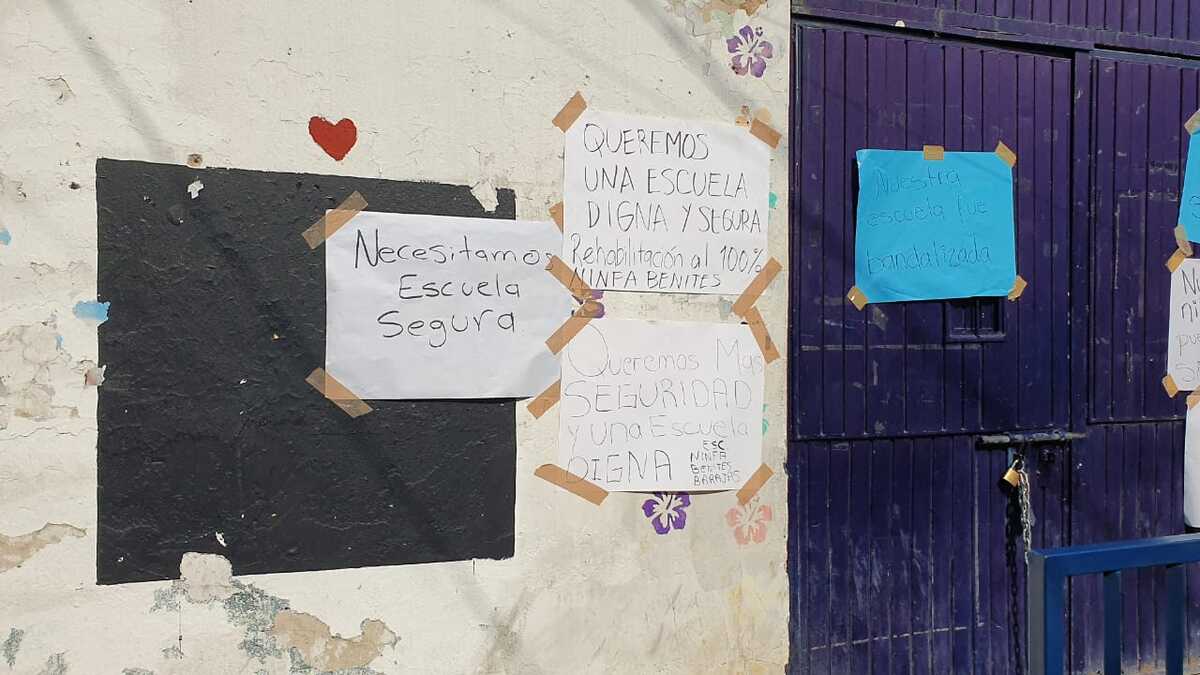 Necesitamos
Escuela
Segura
QUEREMOS
UNA ESCUELA
DIGNA Y SEGURA
Rehabilitación al 100%
NINFA BENITES
Queremos Mas
SEGURIDAD
y una Escuela
DIGNA
ESC
NINFA
BENITES
BARAJAS
Nuestra
escuela fue
bandalizada